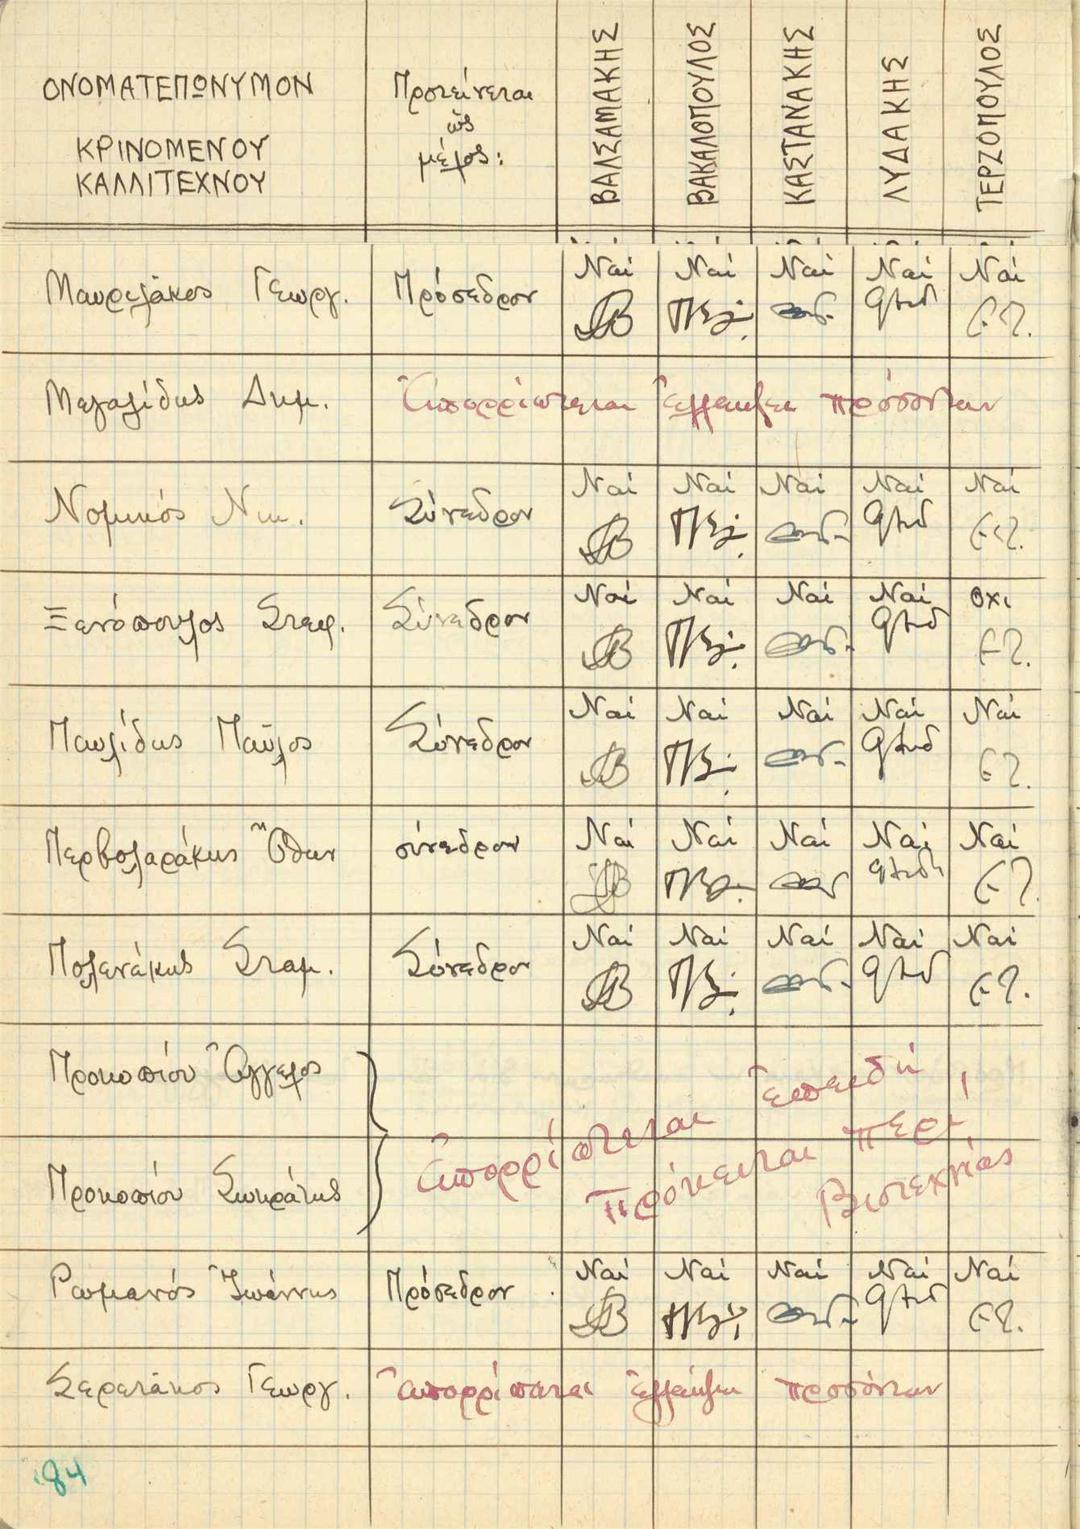 ΟΝΟΜΑΤΕΠΩΝΥΜΟΝ
ΚΡΙΝΟΜΕΝΟΥ
ΚΑΛΛΙΤΕΧΝΟΥ
Προτείνεται
ὡς
μέλος:
ΒΑΛΣΑΜΑΚΗΣ
ΒΑΚΑΛΟΠΟΥΛΟΣ
ΚΑΣΤΑΝΑΚΗΣ
ΛΥΔΑΚΗΣ
ΤΕΡΖΟΠΟΥΛΟΣ
Μαυρελάκος Γεωργ. Πρόσεδρον Ναί Ναί Ναί Ναί Ναί
Μεγαλίδης Δημ. Ἀπορρίπτεται ἐλλείψει προσόντων
Νομικός Νικ. Σύνεδρον Ναί Ναί Ναί Ναί Ναί
Ξενόπουλος Στεφ. Σύνεδρον Ναί Ναί Ναί Ναί ΟΧΙ
Παυλίδης Παῦλος Σύνεδρον Ναί Ναί Ναί Ναί Ναί
Περβολαράκης Ὄθων σύνεδρον Ναί Ναί Ναί Ναί Ναί
Πολενάκης Σταμ. Σύνεδρον Ναί Ναί Ναί Ναί Ναί
Προκοπίου Ἄγγελος
Προκοπίου Σωκράτης
Ἀπορρίπτεται ἐπειδή
πρόκειται περί
Βιοτεχνίας
Ρωμανός Ἰωάννης Πρόσεδρον Ναί Ναί Ναί Ναί Ναί
Σερετάκος Γεωργ. Ἀπορρίπτεται ἐλλείψει προσόντων
84